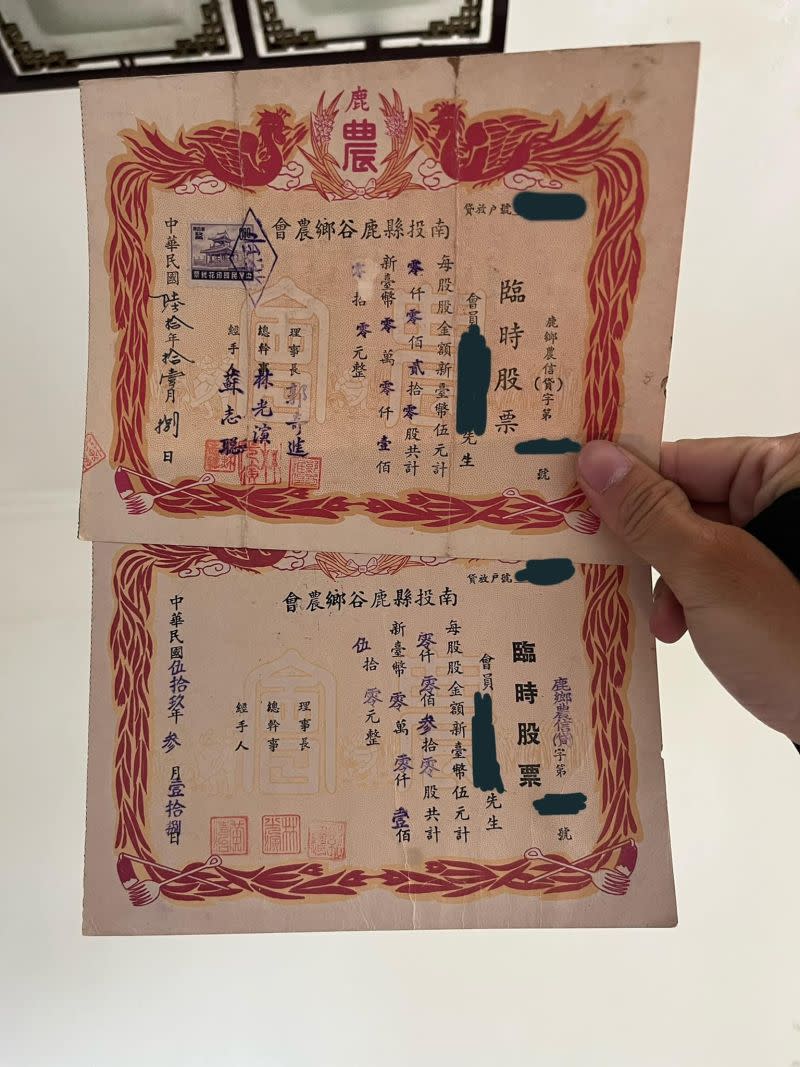 鹿
農
貸放戶號
南投縣鹿谷鄉農會
鹿鄉農信(貸)字第 號
臨時股票
會員 先生
每股股金額新臺幣伍元計
零仟零佰貳拾零股共計
新臺幣零萬零仟壹佰
零拾零元整
理事長郭奇進
總幹事林光演
經手 蘇志聰
中華民國印花稅票
中華民國陸拾年拾壹月捌日
貸放戶號
南投縣鹿谷鄉農會
鹿鄉農信(貸)字第 號
臨時股票
會員 先生
每股股金額新臺幣伍元計
零仟零佰參拾零股共計
新臺幣零萬零仟壹佰
伍拾零元整
理事長
總幹事
經手人
中華民國伍拾玖年參月壹拾捌日